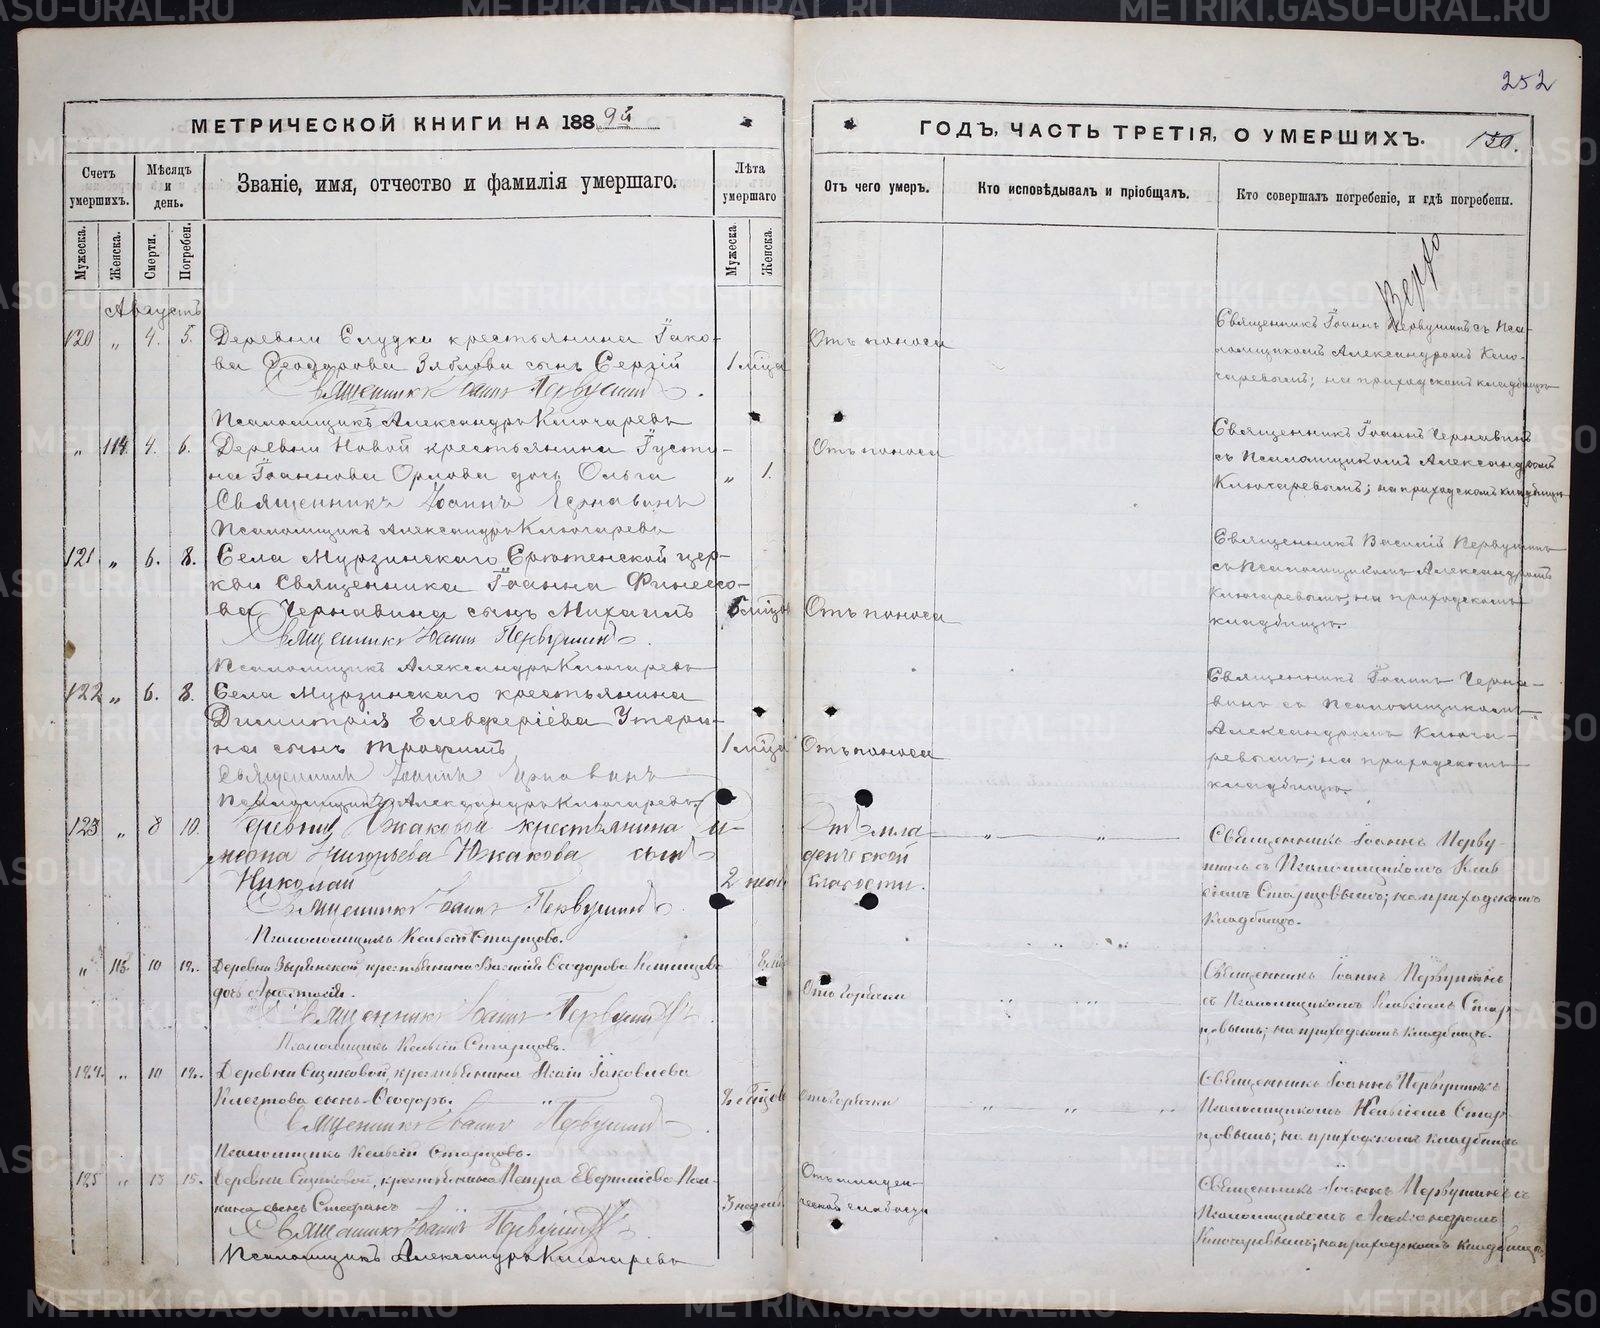 252
МЕТРИЧЕСКОЙ КНИГИ НА 1889й
ГОДЪ, ЧАСТЬ ТРЕТІЯ, О УМЕРШИХЪ. 150.
Счетъ умершихъ.
Мѣсяцъ и день.
Званіе, имя, отчество и фамилія умершаго.
Лѣта умершаго
Отъ чего умеръ.
Кто исповѣдывалъ и пріобщалъ.
Кто совершалъ погребеніе, и гдѣ погребены.
Мужеска.
Женска.
Смерти.
Погребен.
Мужеска.
Женска.
Августъ
120 " 4. 5. Деревни Слудки крестьянина Іако-
ва Ѳеодорова Зяблова сынъ Сергій 1 мѣца Отъ поноса
Священникъ Іоаннъ Первушинъ.
Псаломщикъ Александръ Ключаревъ
Священникъ Іоаннъ Первушинъ съ Пса-
ломщикомъ Александромъ Клю-
чаревымъ; на приходскомъ кладбищѣ
" 114. 4. 6. Деревни Новой крестьянина Густи-
на Іоаннова Орлова дочь Ольга " 1. Отъ поноса
Священникъ Іоаннъ Чернавинъ
Псаломщикъ Александръ Ключаревъ
Священникъ Іоаннъ Чернавинъ
съ Псаломщикомъ Александромъ
Ключаревымъ; на приходскомъ кладбищѣ
121 " 6. 8. Села Мурзинскаго Срѣтенской цер-
кви Священника Іоанна
ва Чернавина сынъ Михаилъ 6 мѣцовъ Отъ поноса
Священникъ Іоаннъ Первушинъ.
Псаломщикъ Александръ Ключаревъ
Священникъ Василій Первушинъ
съ Псаломщикомъ Александромъ
Ключаревымъ; на приходскомъ
кладбищѣ.
122 " 6. 8. Села Мурзинскаго крестьянина
Димитрія Елевѳеріева
на сынъ Трофимъ 1 мѣца Отъ поноса
Священникъ Іоаннъ Чернавинъ
Псаломщикъ Александръ Ключаревъ.
Священникъ Іоаннъ Черна-
винъ съ Псаломщикомъ
Александромъ Ключа-
ревымъ; на приходскомъ
кладбищѣ.
123 " 8 10. Деревни Южаковой крестьянина
Григорьева Южакова сынъ
Николай 2 нед. Отъ мла-
денческой
слабости.
Священникъ Іоаннъ Первушинъ
Псаломщикъ Старцовъ.
Священникъ Іоаннъ Перву-
шинъ съ Псаломщикомъ
Старцовымъ; на приходскомъ
кладбищѣ.
" 115. 10 12. Деревни Зырянской крестьянина Василія Ѳеодорова
дочь Анастасія. Отъ горячки
Священникъ Іоаннъ Первушинъ
Псаломщикъ Старцовъ.
Священникъ Іоаннъ Первушинъ
съ Псаломщикомъ Стар-
цовымъ; на приходскомъ кладбищѣ.
124. " 10 12. Деревни Сизиковой, крестьянина Іаковлева
сынъ Ѳеодоръ. Отъ горячки
Священникъ Іоаннъ Первушинъ
Псаломщикъ Старцовъ.
Священникъ Іоаннъ Первушинъ съ
Псаломщикомъ Стар-
цовымъ; на приходскомъ кладбищѣ
125 " 13 15. Деревни Сизиковой, крестьянина Петра
сынъ Стефанъ 3 недѣль Отъ младен-
ческой слабости
Священникъ Іоаннъ Первушинъ.
Псаломщикъ Александръ Ключаревъ
Священникъ Іоаннъ Первушинъ съ
Псаломщикомъ Александромъ
Ключаревымъ; на приходскомъ кладбищѣ
METRIKI.GASO-URAL.RU